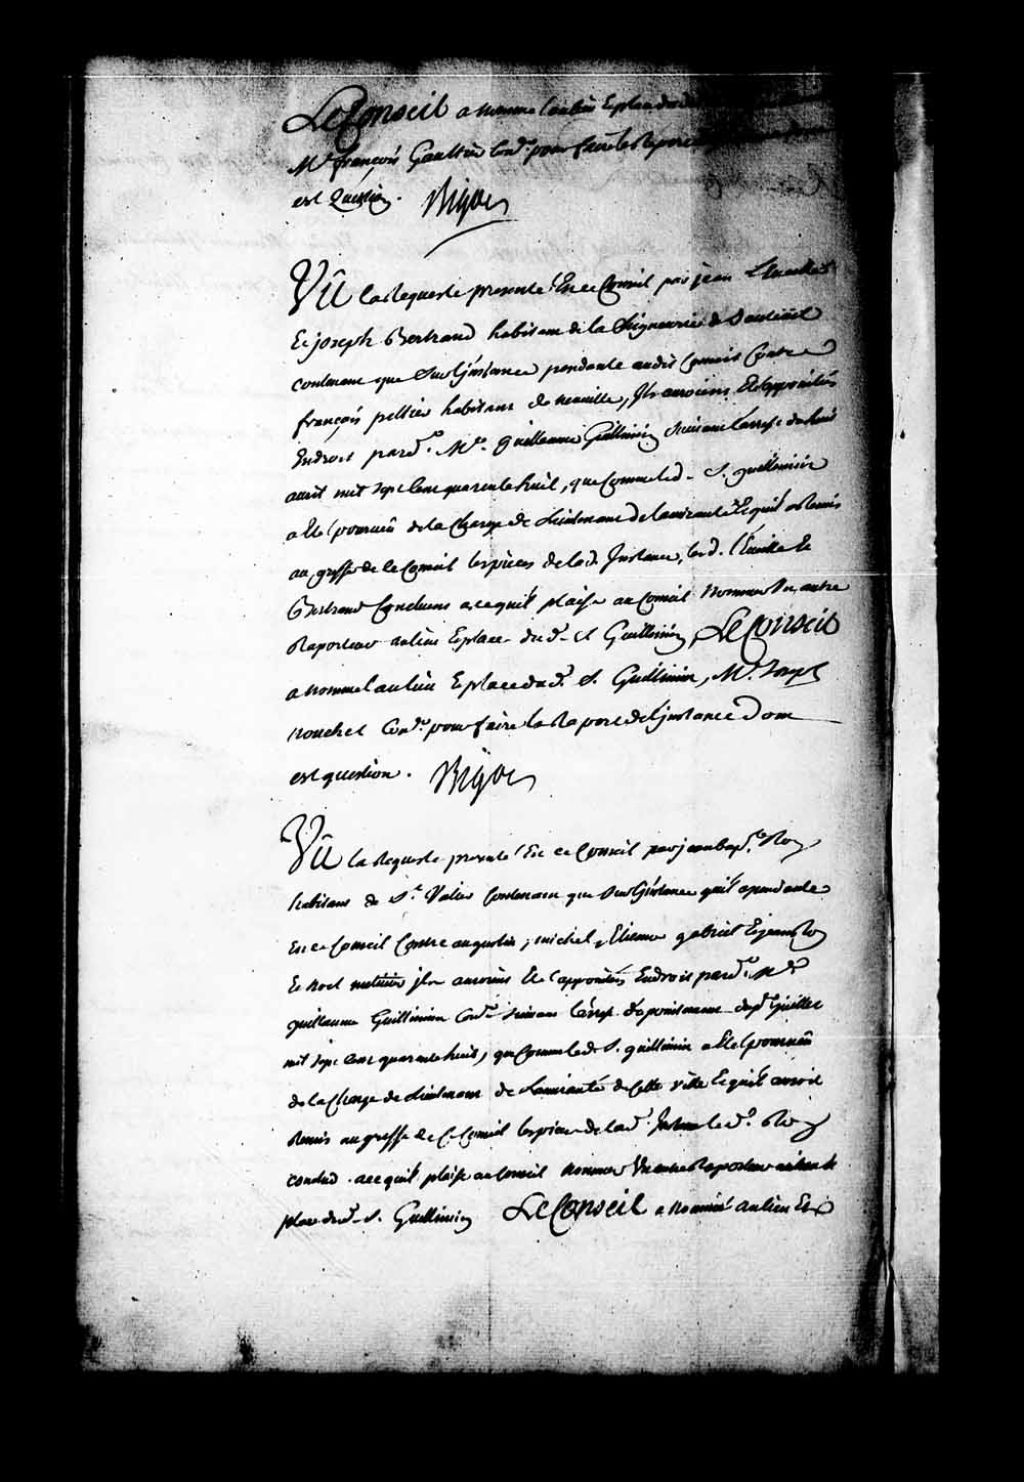 Le Conseil a nomme au lieu Et place du
Mr. françois Gaultier Conr. pour faire le Raport
est Question. Bigot
Vû la Requeste presenté En ce Conseil par jean
Et joseph Bertrand habitans de la Seigneurie de
contenant que Sur l'jnstance pendante audit Conseil Contre
françois pellier habitant de neuville, jls auroient Eté appointés
Endroit pard. Mre. guillaume Guillimin suivant l'arrest du
aoust mil sept cent quarente huit, que Comme led. S. guillimin
a Eté pourvû de la Charge de Lieutenant de Lamirauté Et quil a Remis
au greffe de ce Conseil les pieces de lad. Jnstance, lesd. Et
Bertrand Concluent a ce quil plaise au Conseil nommer Un autre
Raporteur au lieu Et place dud. S. Guillimin, Le Conseil
a nommé au lieu Et place dud. S. Guillimin, Mr. Joseph
nouchet Conr. pour faire le Raport de l'jnstance Dont
est question. Bigot
Vû la Requeste presenté En ce Conseil par jean bapte. Roy
habitant de St. Valier Contenant que Sur l'jnstance quil a pendante
En ce Conseil Contre augustin, michel, Etienne gabriel Et jean Roy
Et noel jls auroient Eté appointés Endroit pard. Mre.
guillaume Guillimin Conr. suivant l'arrest d'apointement du Juillet
mil sept cent quarente huit, que Comme led. S. guillimin a Eté pourvû
de la Charge de Lieutenant de Lamirauté de Cette ville Et quil auroit
Remis au greffe de Ce Conseil les pieces de lad. Jnstance led. Roy
conclud a ce quil plaise au Conseil nommer Un autre Raporteur au lieu Et
place dud. S. Guillimin Le Conseil a nommé au lieu Et